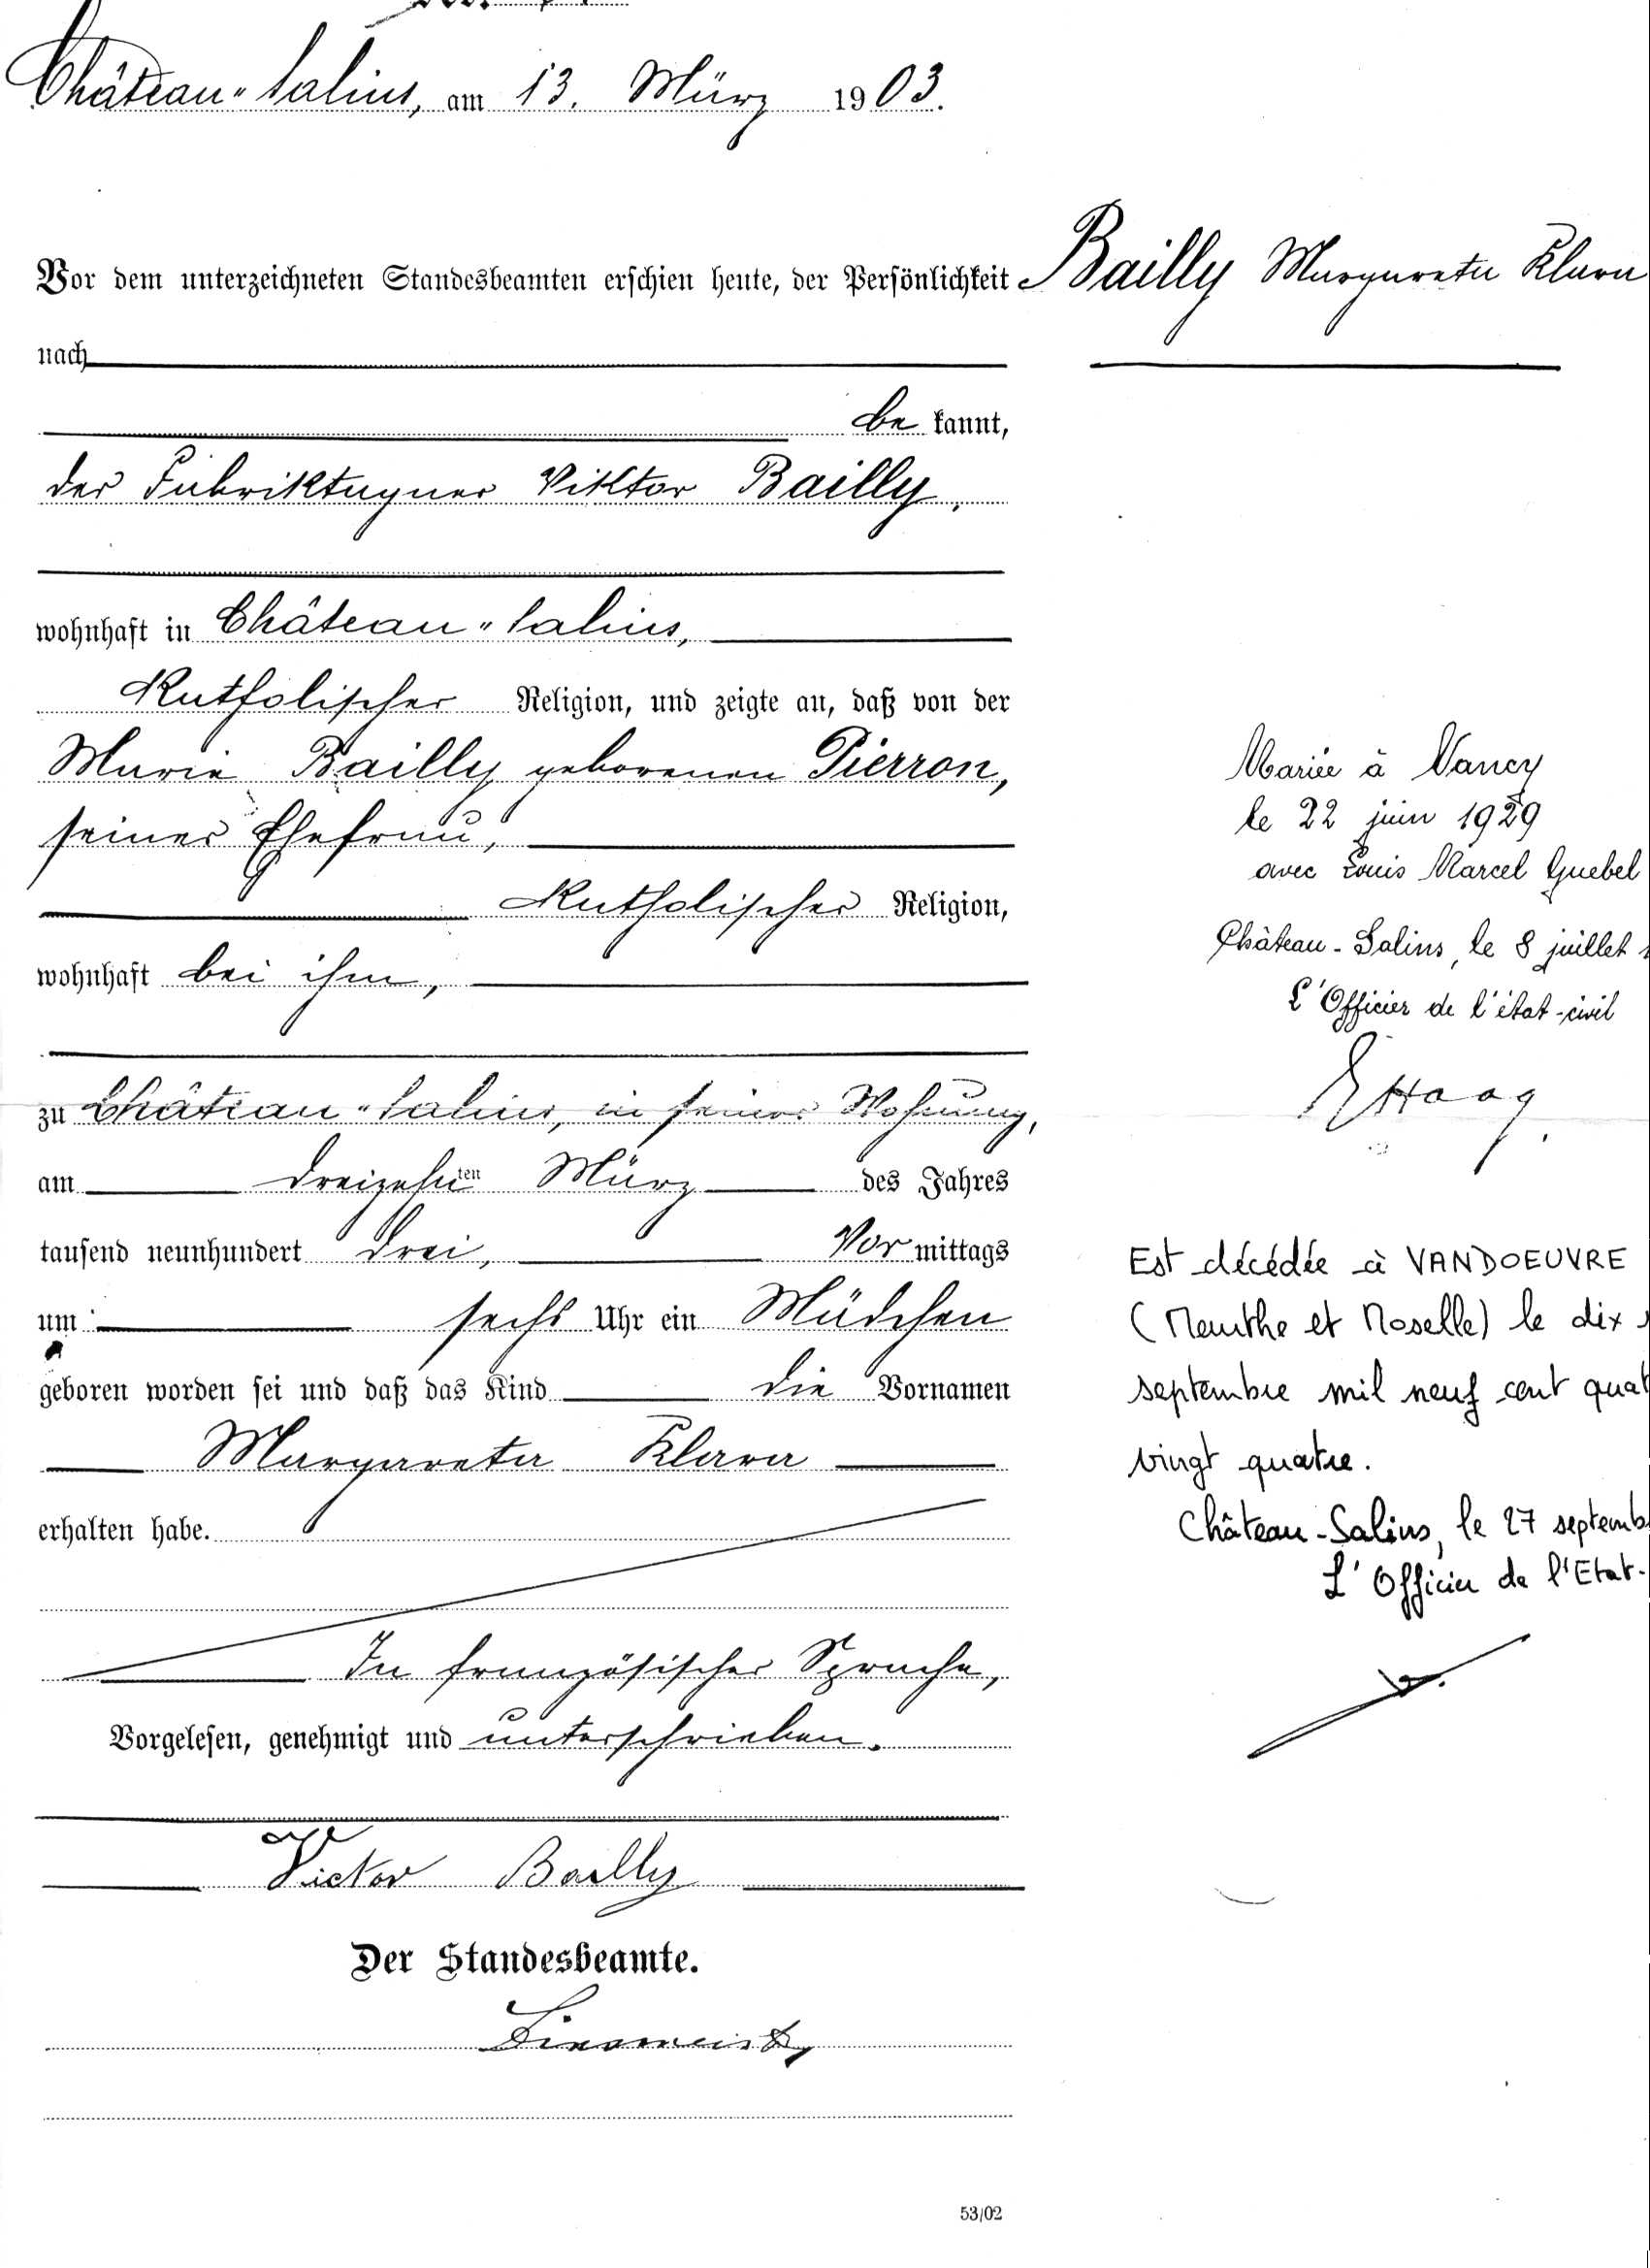 Château-Salins, am 13. März 1903.
Vor dem unterzeichneten Standesbeamten erschien heute, der Persönlichkeit
nach
be kannt,
der Fabriktagner Viktor Bailly,
wohnhaft in Château-Salins,
Katholischer Religion, und zeigte an, daß von der
Marie Bailly geborenen Pierron,
seiner Ehefrau,
Katholischer Religion,
wohnhaft bei ihm,
zu Château-Salins, in seiner Wohnung,
am dreizehnten März des Jahres
tausend neunhundert drei, Vor mittags
um sechs Uhr ein Mädchen
geboren worden sei und daß das Kind die Vornamen
Margareta Klara
erhalten habe.
In französischer Sprache,
Vorgelesen, genehmigt und unterschrieben.
Victor Bailly
Der Standesbeamte.
53/02
Bailly Margareta Klara
Mariée à Nancy
le 22 juin 1929
avec Louis Marcel Guebel
Château-Salins, le 8 juillet
L'Officier de l'état-civil
EHaag.
Est décédée à VANDOEUVRE
(Meurthe et Moselle) le dix
septembre mil neuf cent quat
vingt quatre.
Château-Salins, le 27 septemb
L'Officier de l'Etat-